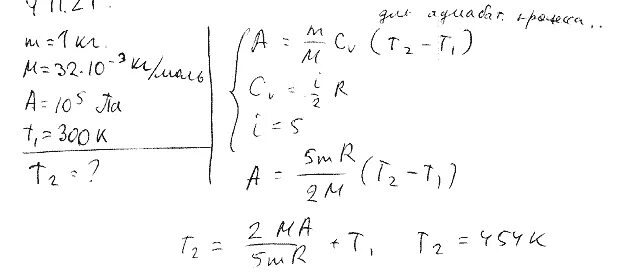 4 11.21.
для адиабат. процесса..
m = 1 кг.
M = 32·10⁻³ кг/моль
A = 10⁵ Па
t₁ = 300 K
T₂ = ?
A = m/M Cᵥ (T₂ - T₁)
Cᵥ = i/2 R
i = 5
A = 5mR/2M (T₂ - T₁)
T₂ = 2MA/5mR + T₁ T₂ = 454K